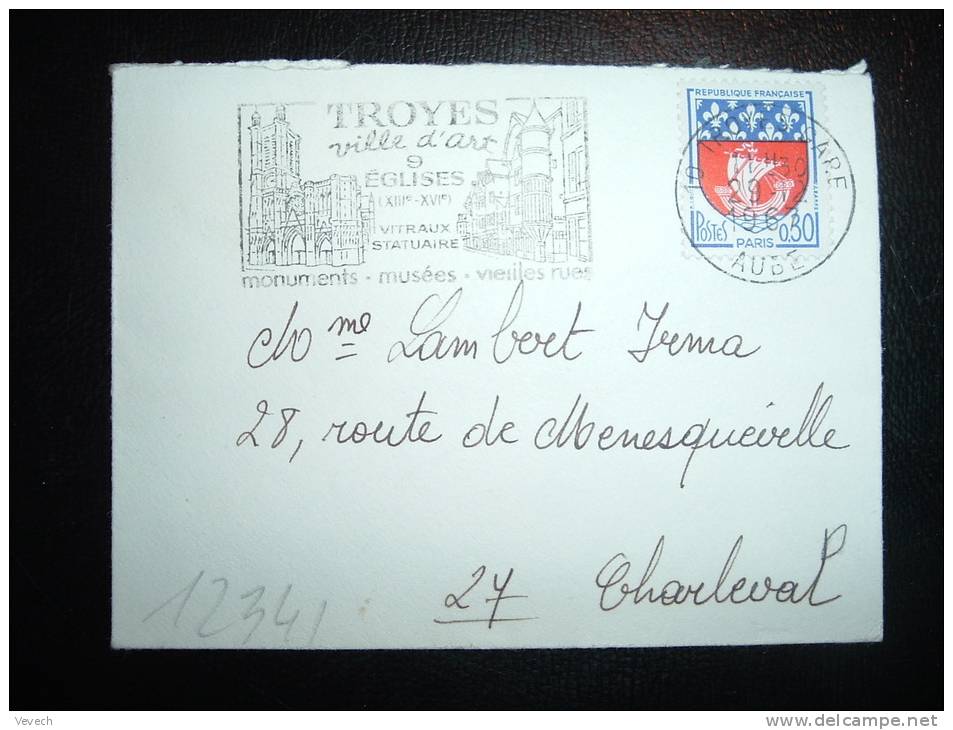 TROYES
ville d'art
9
ÉGLISES
(XIIIe-XVIe)
VITRAUX
STATUAIRE
monuments - musées - vieilles rues
REPUBLIQUE FRANÇAISE
POSTES 0,30
PARIS
10 TROYES GARE
29 - 2
196
AUBE
Mme Lambert Irma
28, route de Menesqueville
27 Charleval
12341
Vevech
www.delcampe.net